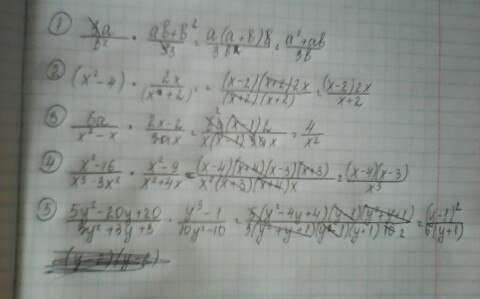 ① 3a/b² · (ab+b²)/33 = a(a+b)b/3b² = (a²+ab)/3b
② (x²-4) · 2x/(x+2)² = (x-2)(x+2)2x/(x+2)(x+2) = (x-2)2x/(x+2)
③ 6a/(x²-x) · (2x-2)/3ax = 6a(x-1)2/x(x-1)3ax = 4/x²
④ (x²-16)/(x³-3x²) · (x²-9)/(x²+4x) = (x-4)(x+4)(x-3)(x+3)/x²(x+3)(x+4)x = (x-4)(x-3)/x³
⑤ (5y²-20y+20)/(3y²+3y+3) · (y³-1)/(10y²-10) = 5(y²-4y+4)(y-1)(y²+y+1)/3(y²+y+1)(y-1)(y+1)10 2 = (y-1)²/6(y+1)